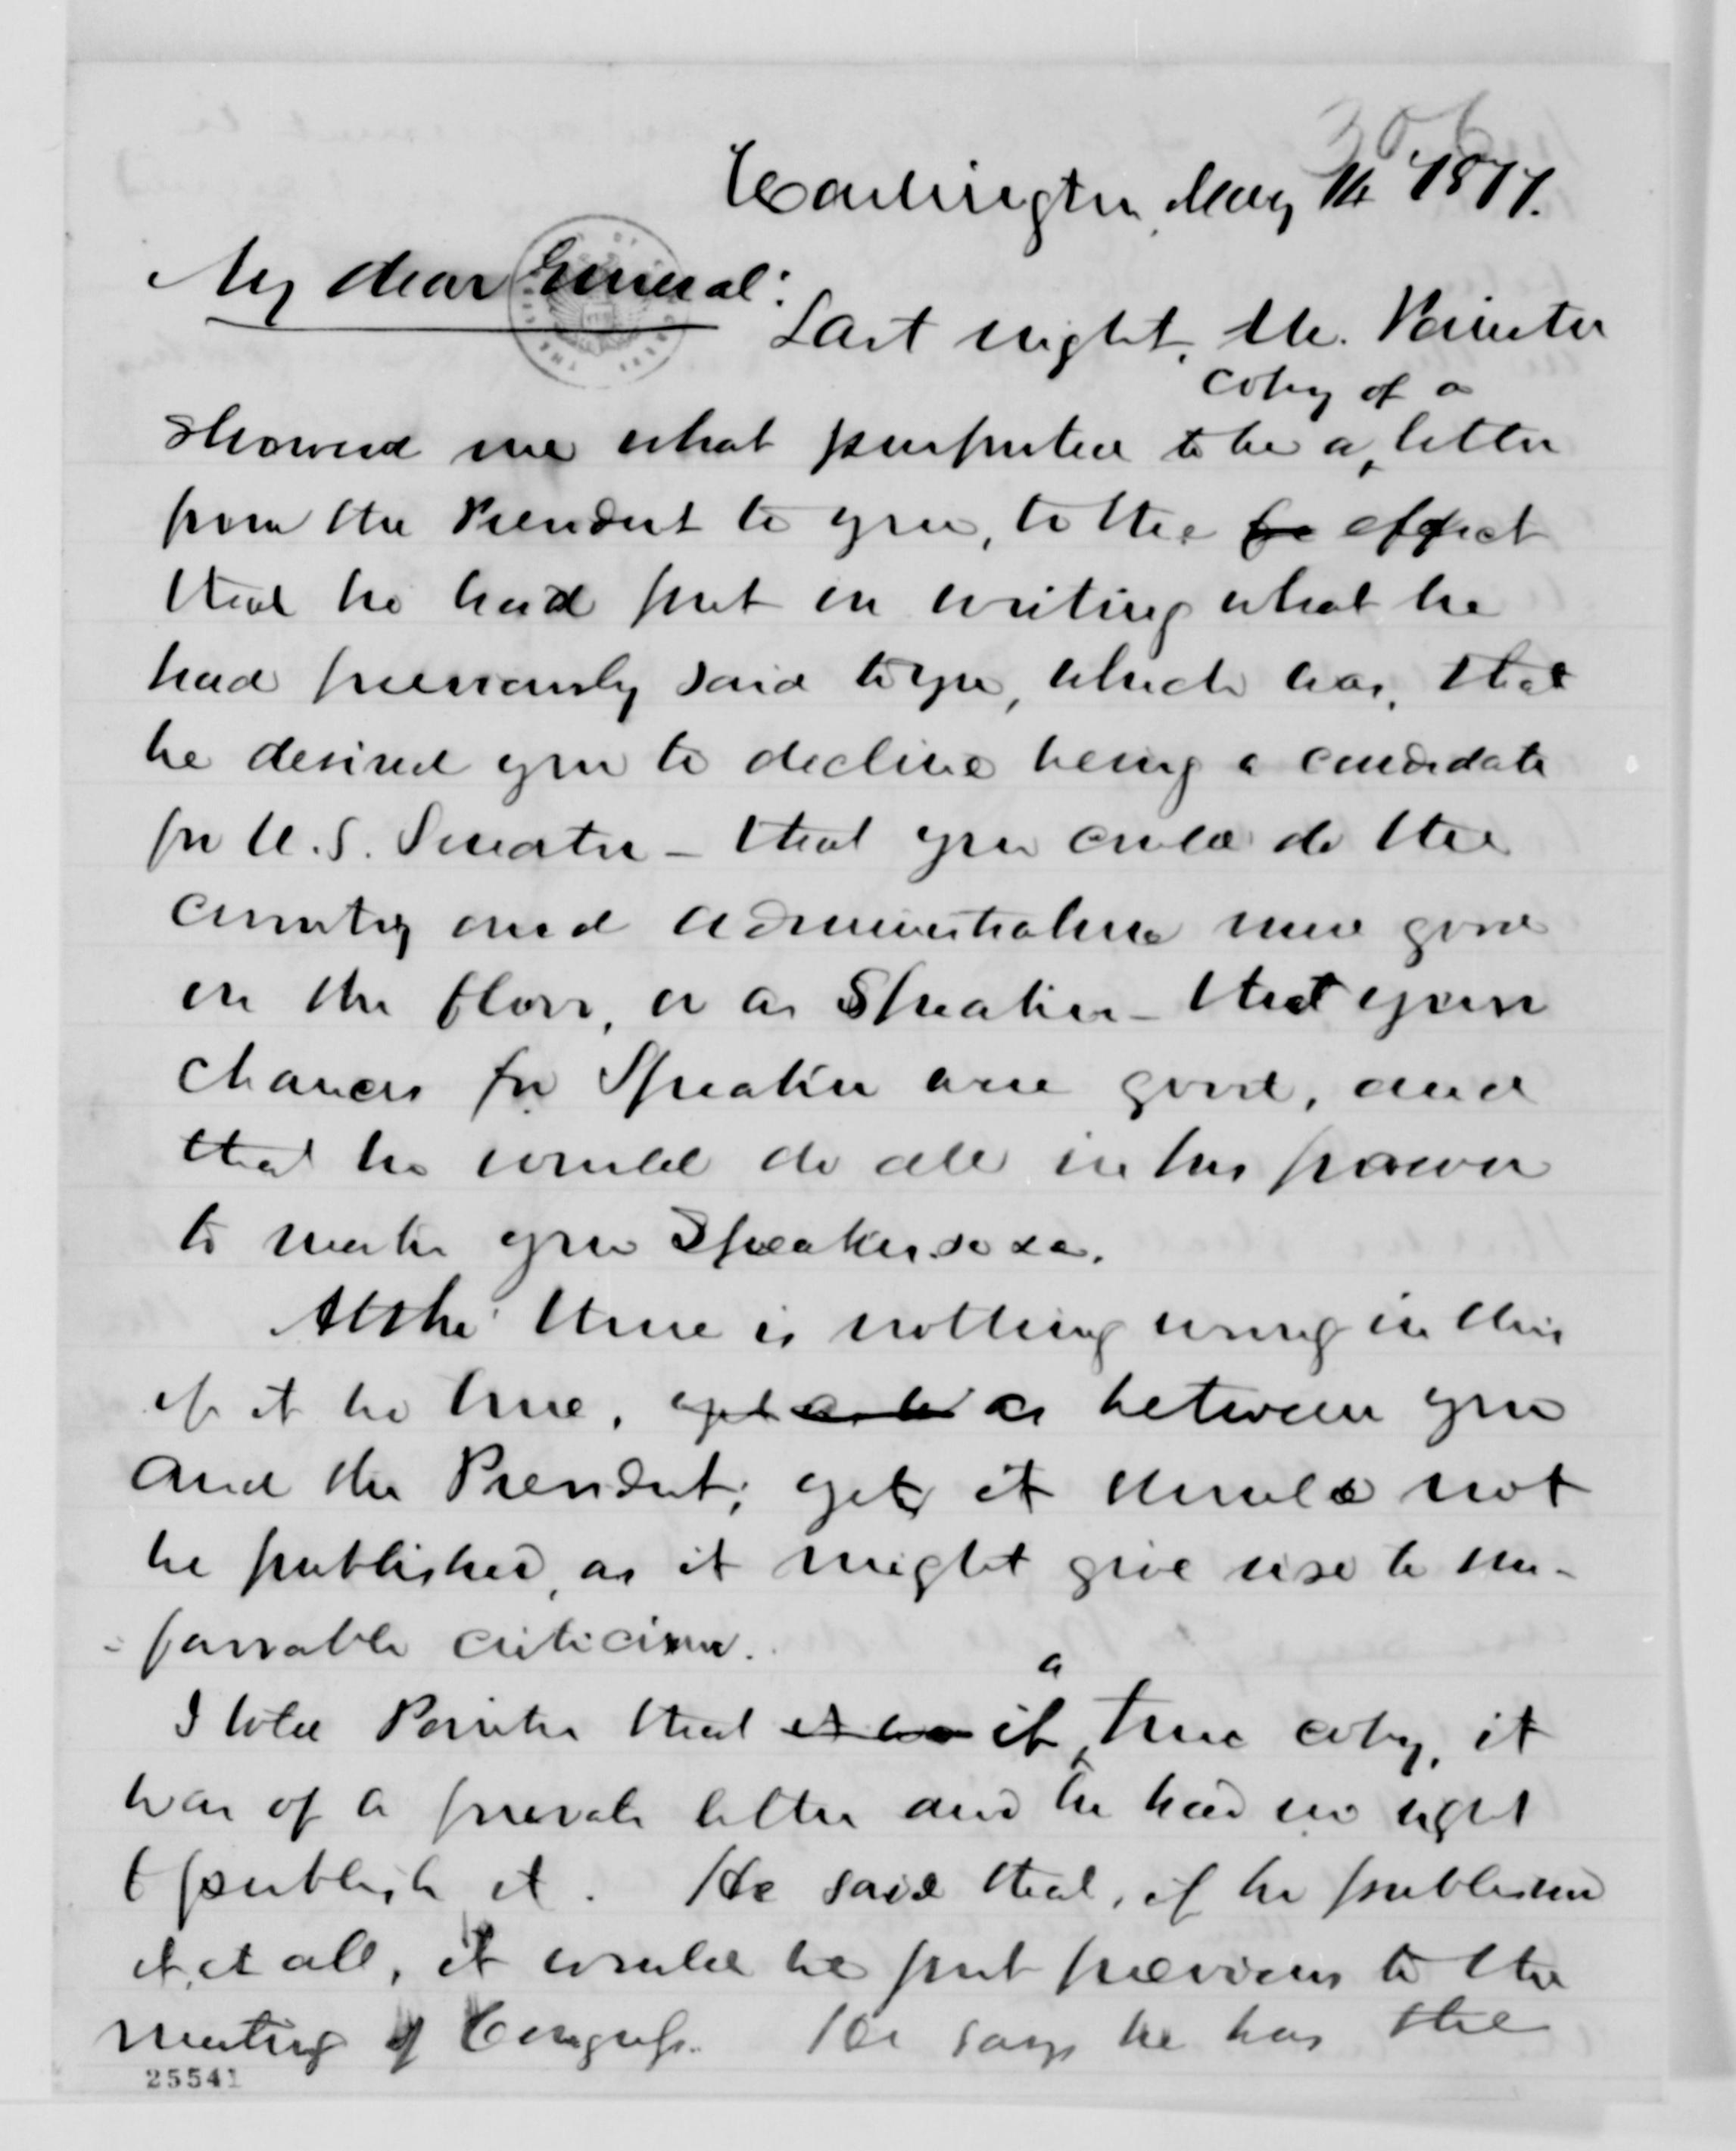 306
Washington, May 14 1877.
My dear General:
Last night, Mr. Painter
copy of a
showed me what purported to be a letter
from the President to you, to the effect
that he had put in writing what he
had previously said to you, which was, that
he desired you to decline being a candidate
for U.S. Senator - that you could do the
country and administration more good
on the floor, or as Speaker - that your
chances for Speaker are good, and
that he would do all in his power
to make you Speaker
Altho' there is nothing wrong in this
if it be true, as between you
and the President; yet, it should not
be published, as it might give rise to un-
-favorable criticism.
a
I told Painter that if true copy, it
was of a private letter and he had no right
to publish it. He said that, if he published
it, at all, it would be just previous to the
meeting of Congress. He says he has the
25541